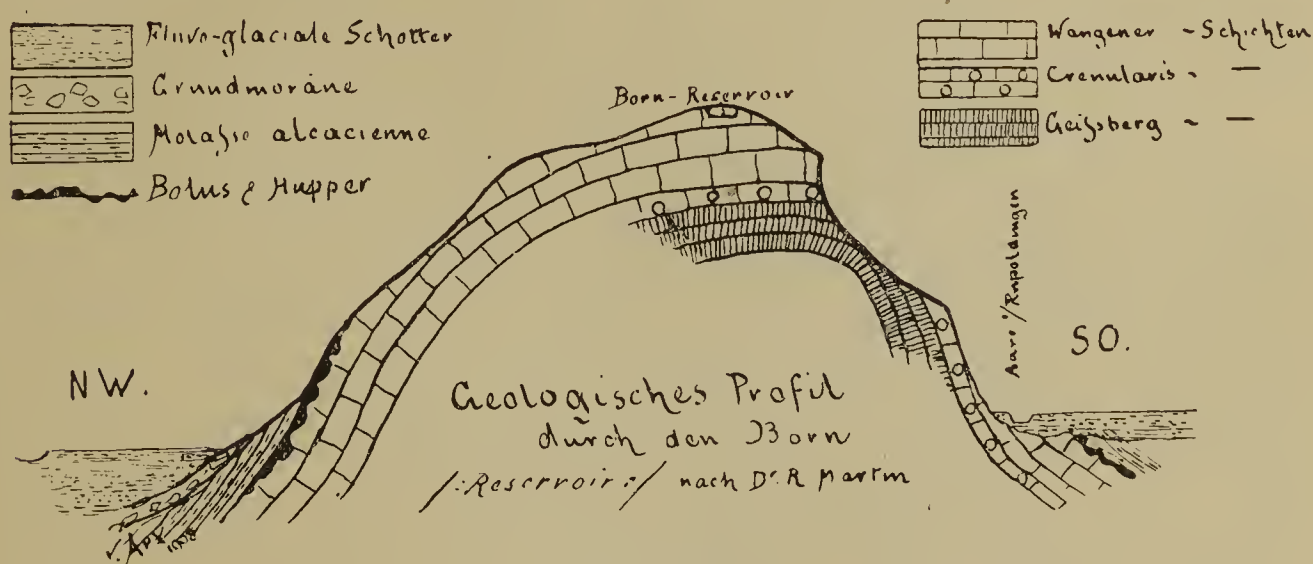 Fluvo-glaciale Schotter
Grundmoräne
Molaſse alsacienne
Bolus & Hupper
Wangener - Schichten
Crenularis - —
Geiſsberg - —
Born-Reservoir
NW.
SO.
Aare b/Ruppoldingen
Geologisches Profil
durch den Born
/:Reservoir:/ nach Dr. R Martin
v. Arx 1908